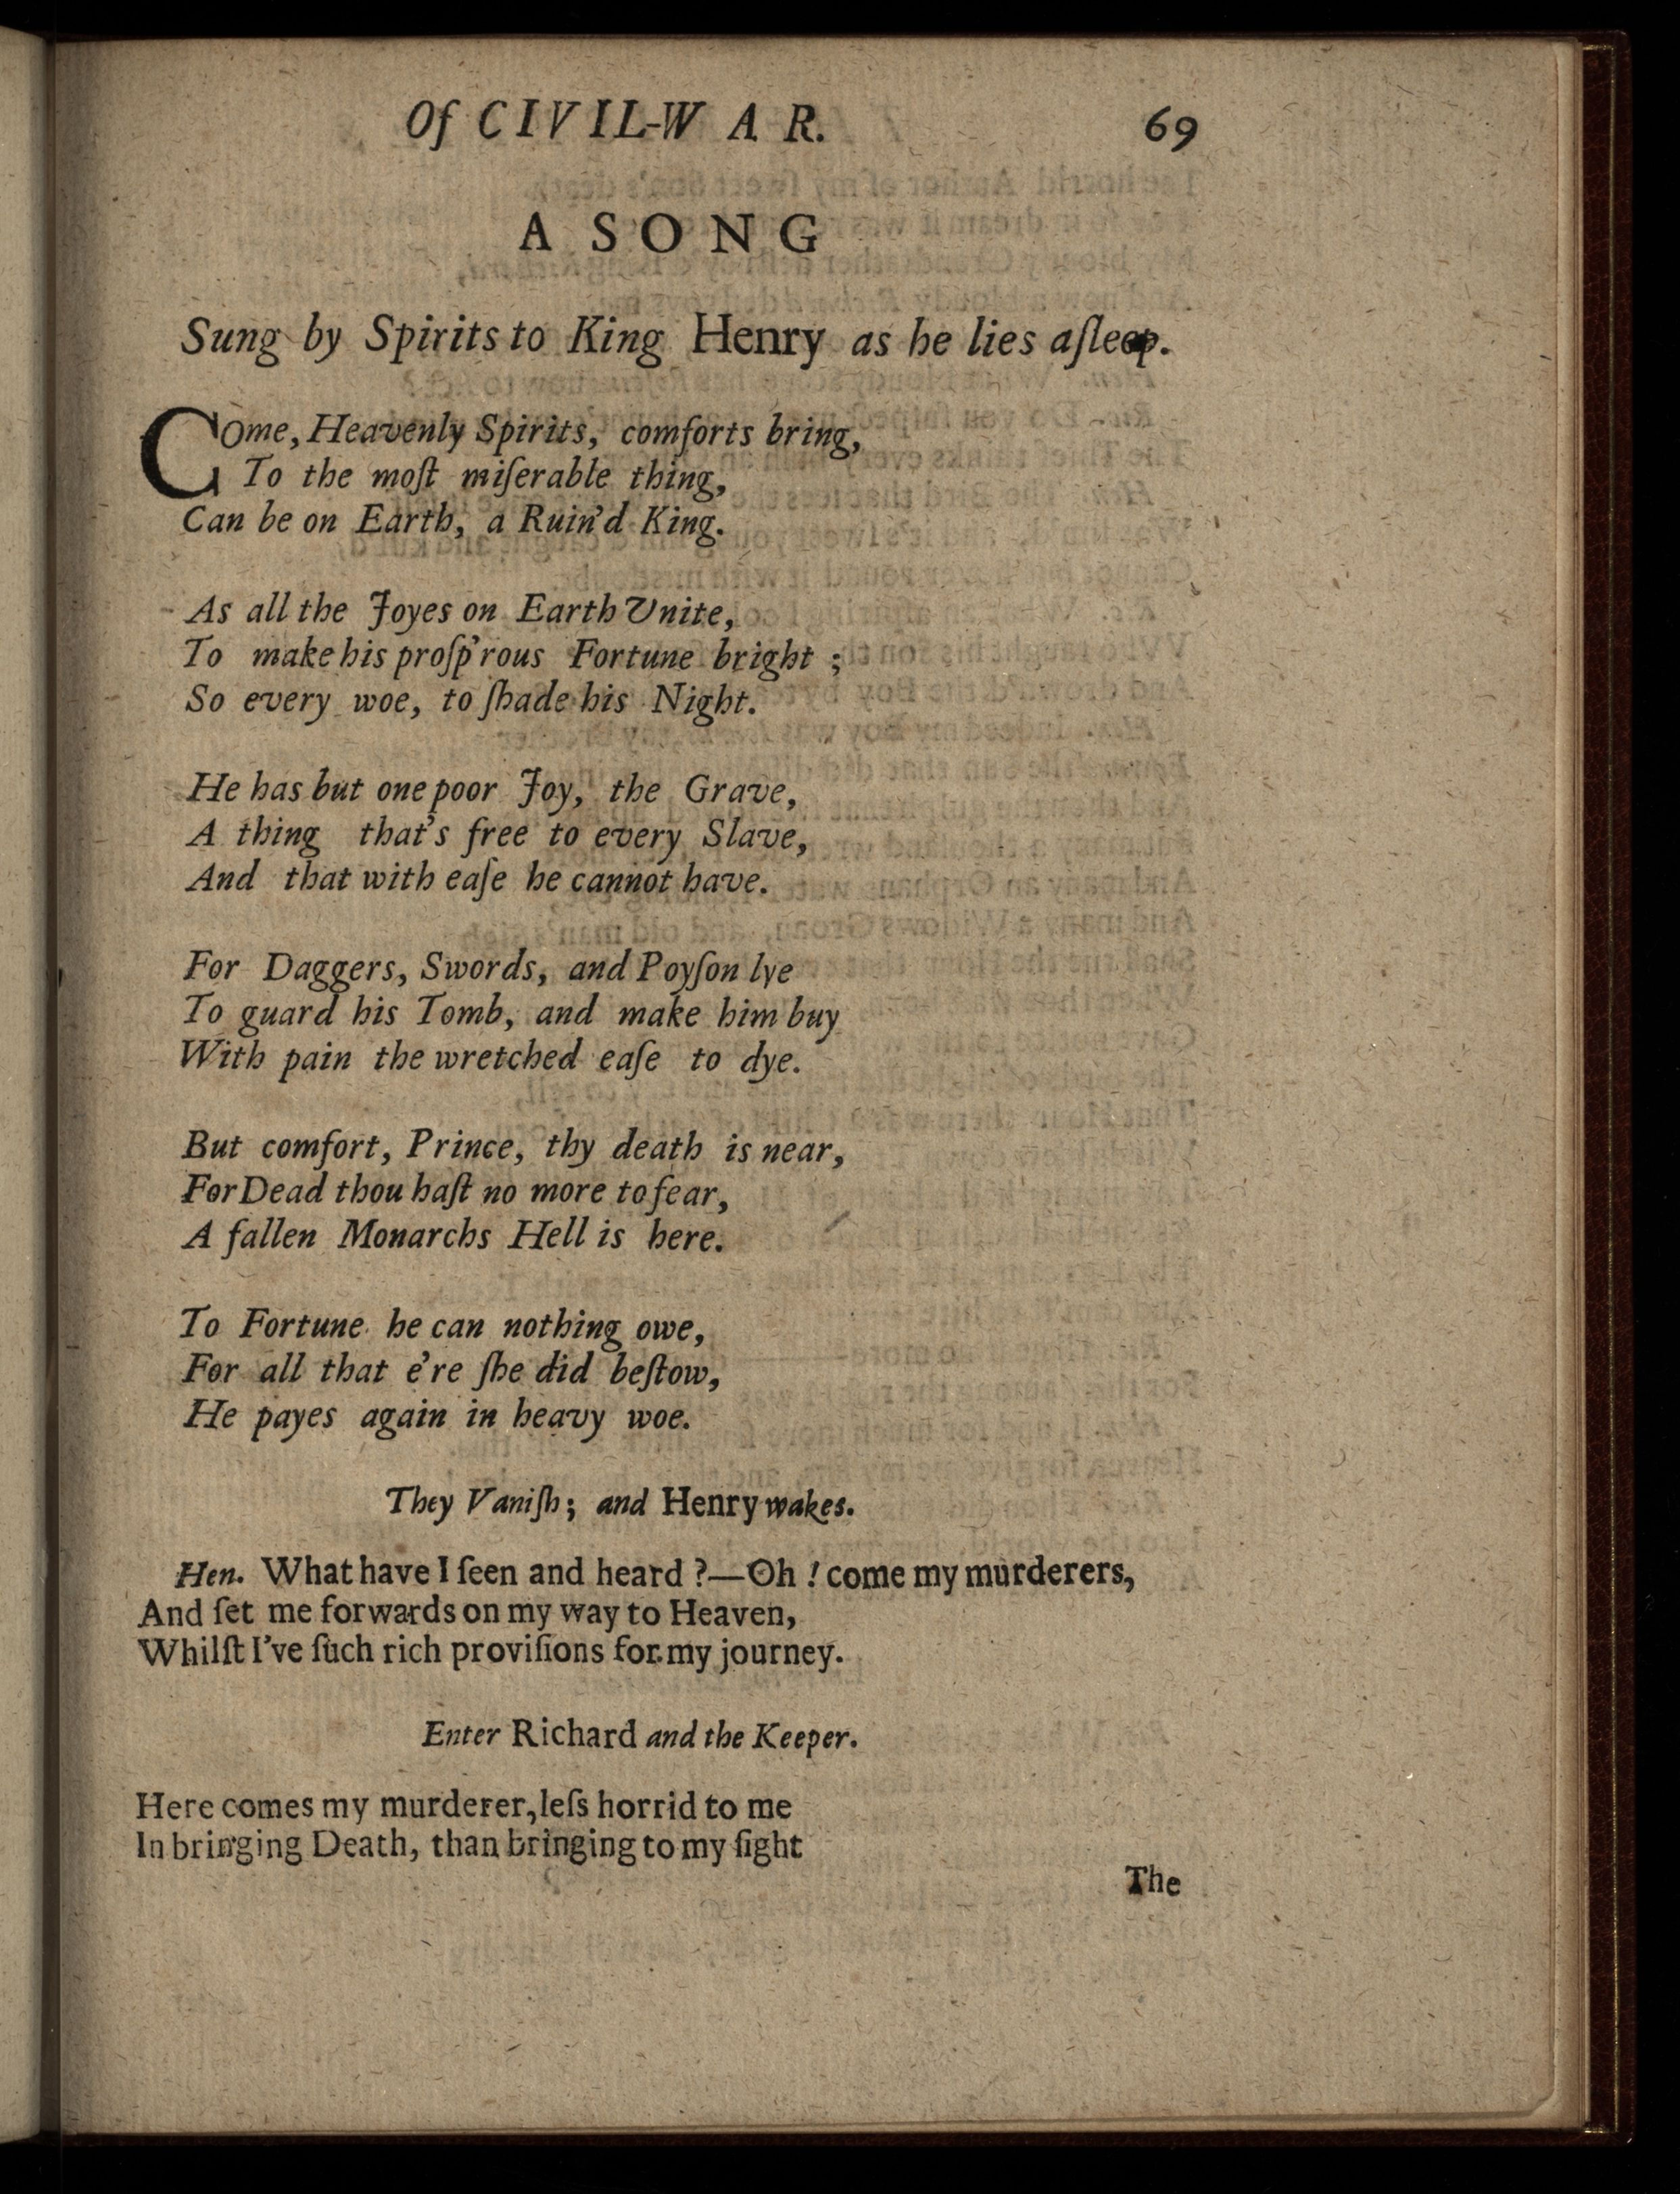 Of CIVIL-WAR. 69
A SONG
Sung by Spirits to King Henry as he lies aſleep.
COme, Heavenly Spirits, comforts bring,
To the moſt miſerable thing,
Can be on Earth, a Ruin'd King.
As all the Joyes on Earth Unite,
To make his proſp'rous Fortune bright ;
So every woe, to ſhade his Night.
He has but one poor Joy, the Grave,
A thing that's free to every Slave,
And that with eaſe he cannot have.
For Daggers, Swords, and Poyſon lye
To guard his Tomb, and make him buy
With pain the wretched eaſe to dye.
But comfort, Prince, thy death is near,
For Dead thou haſt no more to fear,
A fallen Monarchs Hell is here.
To Fortune he can nothing owe,
For all that e're ſhe did beſtow,
He payes again in heavy woe.
They Vaniſh; and Henry wakes.
Hen. What have I ſeen and heard ?—Oh ! come my murderers,
And ſet me forwards on my way to Heaven,
Whilſt I've ſuch rich proviſions for my journey.
Enter Richard and the Keeper.
Here comes my murderer, leſs horrid to me
In bringing Death, than bringing to my ſight
The